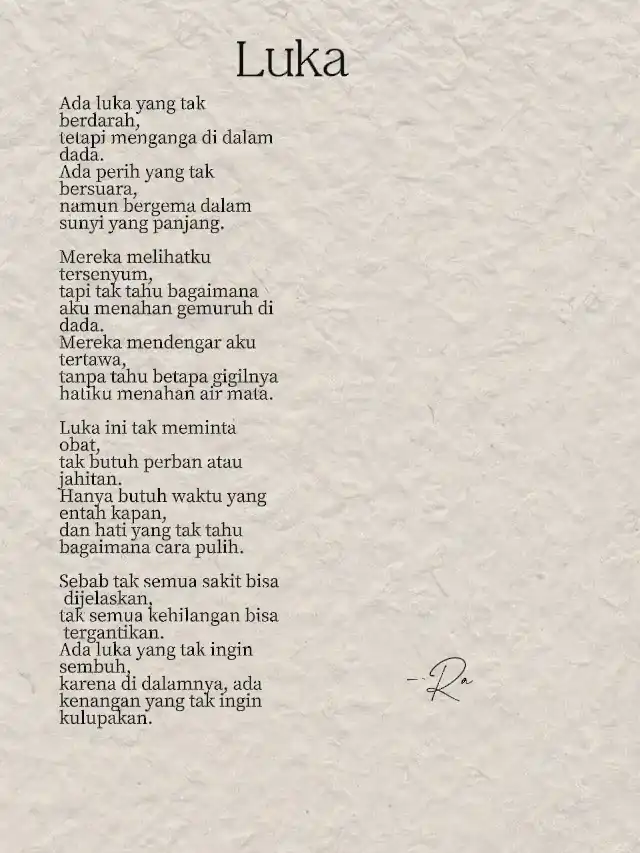 Luka
Ada luka yang tak
berdarah,
tetapi menganga di dalam
dada.
Ada perih yang tak
bersuara,
namun bergema dalam
sunyi yang panjang.
Mereka melihatku
tersenyum,
tapi tak tahu bagaimana
aku menahan gemuruh di
dada.
Mereka mendengar aku
tertawa,
tanpa tahu betapa gigilnya
hatiku menahan air mata.
Luka ini tak meminta
obat,
tak butuh perban atau
jahitan.
Hanya butuh waktu yang
entah kapan,
dan hati yang tak tahu
bagaimana cara pulih.
Sebab tak semua sakit bisa
dijelaskan,
tak semua kehilangan bisa
tergantikan.
Ada luka yang tak ingin
sembuh,
karena di dalamnya, ada
kenangan yang tak ingin
kulupakan.
--Ra